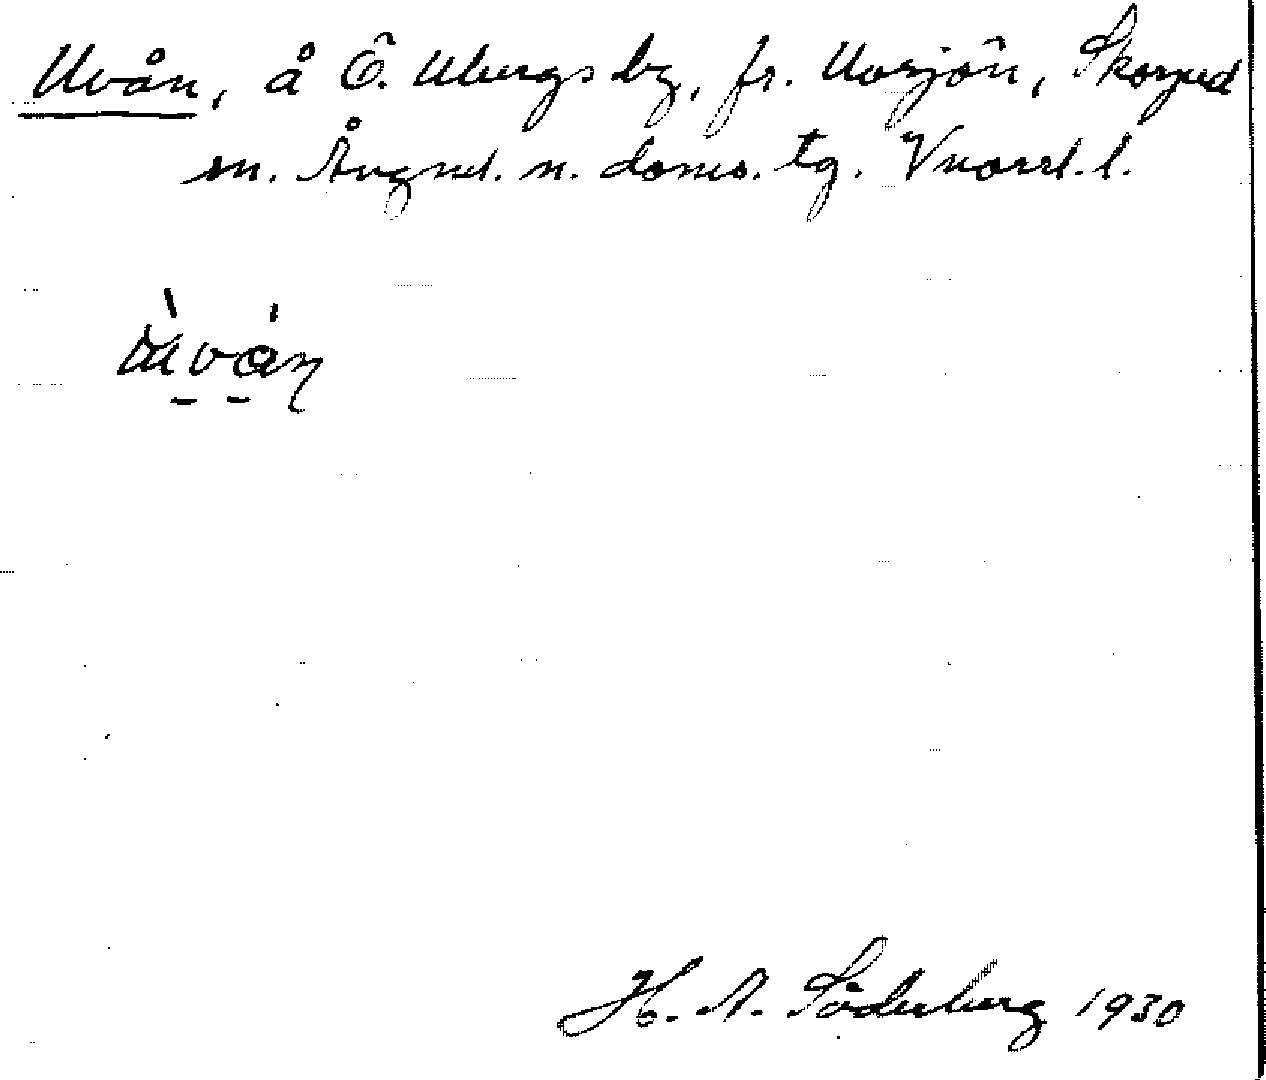 Uvån, å Ö. Ubergsby, fr. Uvsjön, Skorped
sn. Ångml. n. doms. tg. Vnorrl. l.
ùván
H. A. Söderberg 1930